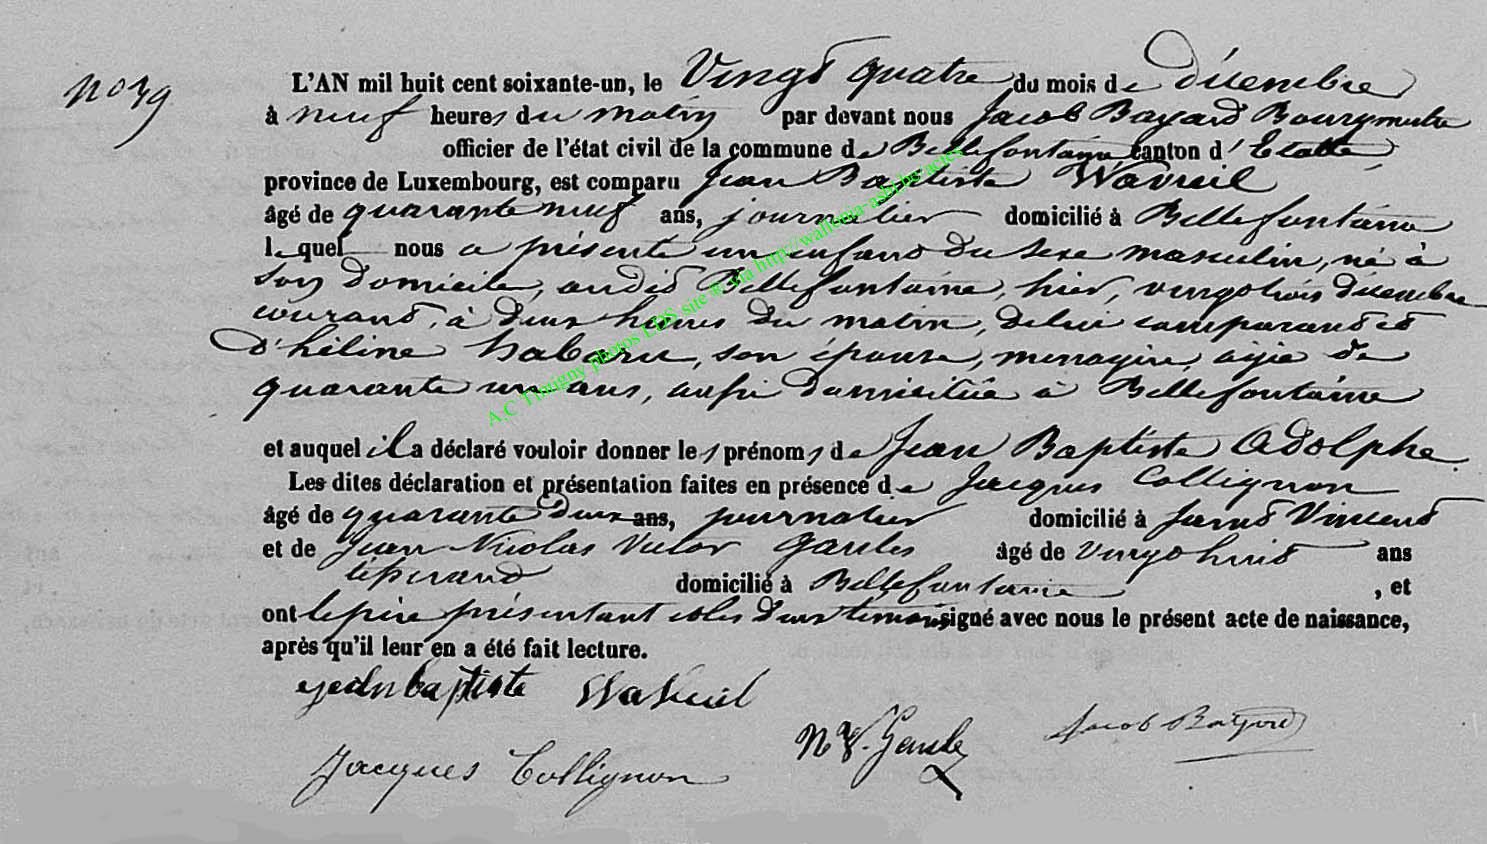 No 39
L'AN mil huit cent soixante-un, le Vingt quatre du mois de décembre
à neuf heures du matin par devant nous Jacob Bayard Bourgmestre
officier de l'état civil de la commune de Bellefontaine canton d'Etalle
province de Luxembourg, est comparu Jean Baptiste Wavreil
âgé de quarante neuf ans, journalier domicilié à Bellefontaine
lequel nous a présenté un enfant du sexe masculin, né à
son domicile, audit Bellefontaine, hier, vingt trois décembre
courant, à deux heures du matin, de lui comparant et
d'héline habaru, son épouse, menagère, agée de
quarante un ans, aussi domiciliée à Bellefontaine
et auquel il a déclaré vouloir donner les prénoms de Jean Baptiste Adolphe.
Les dites déclaration et présentation faites en présence de Jacques Collignon
âgé de quarante deux ans, journalier domicilié à Saint Vincent
et de Jean Nicolas Victor Gaules âgé de vingt huit ans
tisserand domicilié à Bellefontaine , et
ont le père présentant et les deux témoins signé avec nous le présent acte de naissance,
après qu'il leur en a été fait lecture.
jean baptiste Wavreil
N V.
Jacob Bayard
Jacques Collignon
A.C Tintigny photos LDS site @ via http://wallonia-asbl.be/actes